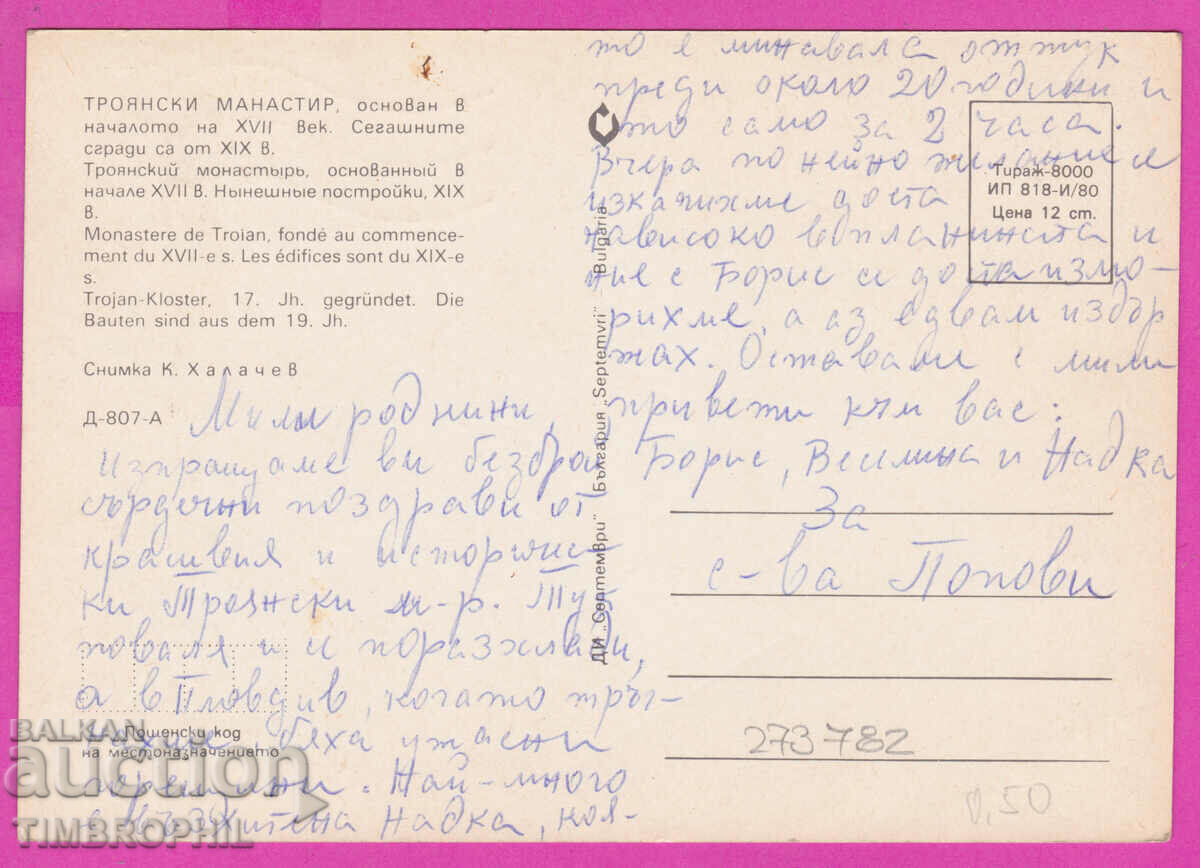 ТРОЯНСКИ МАНАСТИР, основан в
началото на XVII век. Сегашните
сгради са от XIX в.
Троянский монастырь, основанный в
начале XVII в. Нынешные постройки, XIX
в.
Monastere de Troian, fondé au commence-
ment du XVII-e s. Les édifices sont du XIX-e
s.
Trojan-Kloster, 17. Jh. gegründet. Die
Bauten sind aus dem 19. Jh.
Снимка К. Халачев
Д-807-А
Мили роднини,
изпращаме ви безброй
сърдечни поздрави от
красивия и историчес-
ки Троянски м-р. Тук
поваля и се поразхлади,
а в Пловдив, когато тръг-
нахме бяха ужасни
горещини. Най-много
е възхитена Надка, коя-
то е минавала оттук
преди около 20 години и
то само за 2 часа.
Вчера по нейно желание се
изкачихме доста
нависоко в планината и
ние с Борис се доста измо-
рихме, а аз едвам издър
жах. Оставаме с мили
привети към вас:
Борис, Веселина и Надка
За
с-ва Попови
ДИ „Септември" България „Septemvri" Bulgaria
Тираж-8000
ИП 818-И/80
Цена 12 ст.
Пощенски код
на местоназначението
273782
0,50
BALKAN
auction
TIMBROPHIL